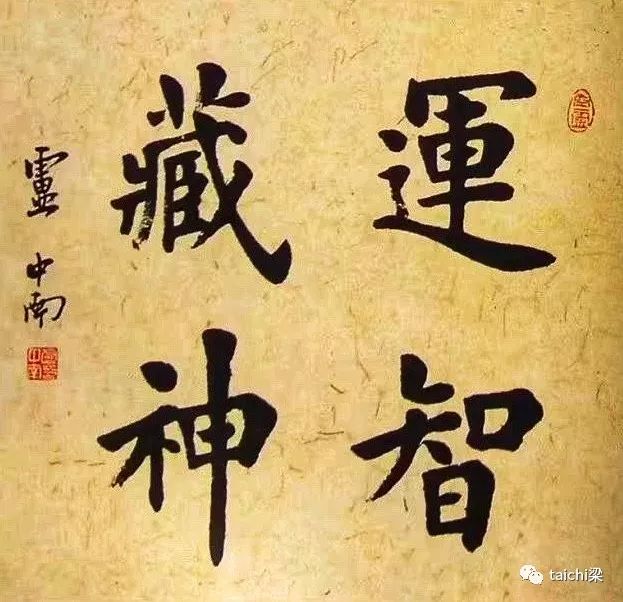 運智
藏神
盧中南
taichi梁